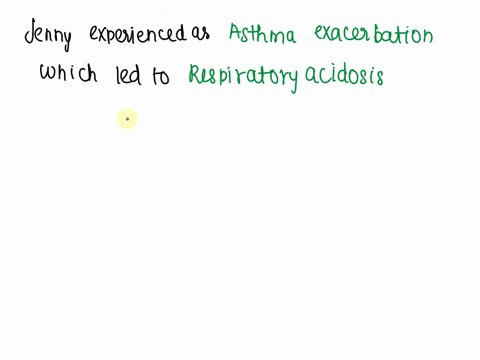 Jenny experienced as Asthma exacerbation
which led to Respiratory acidosis